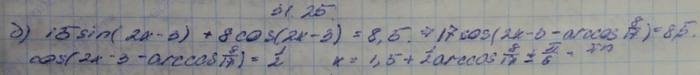 31.25.
б) 15sin(2x-3) + 8cos(2x-3) = 8,5. ⇒ 17cos(2x-3-arccos 8/17) = 8,5.
cos(2x-3-arccos 8/17) = 1/2 x = 1,5 + 1/2 arccos 8/17 ± π/6 -